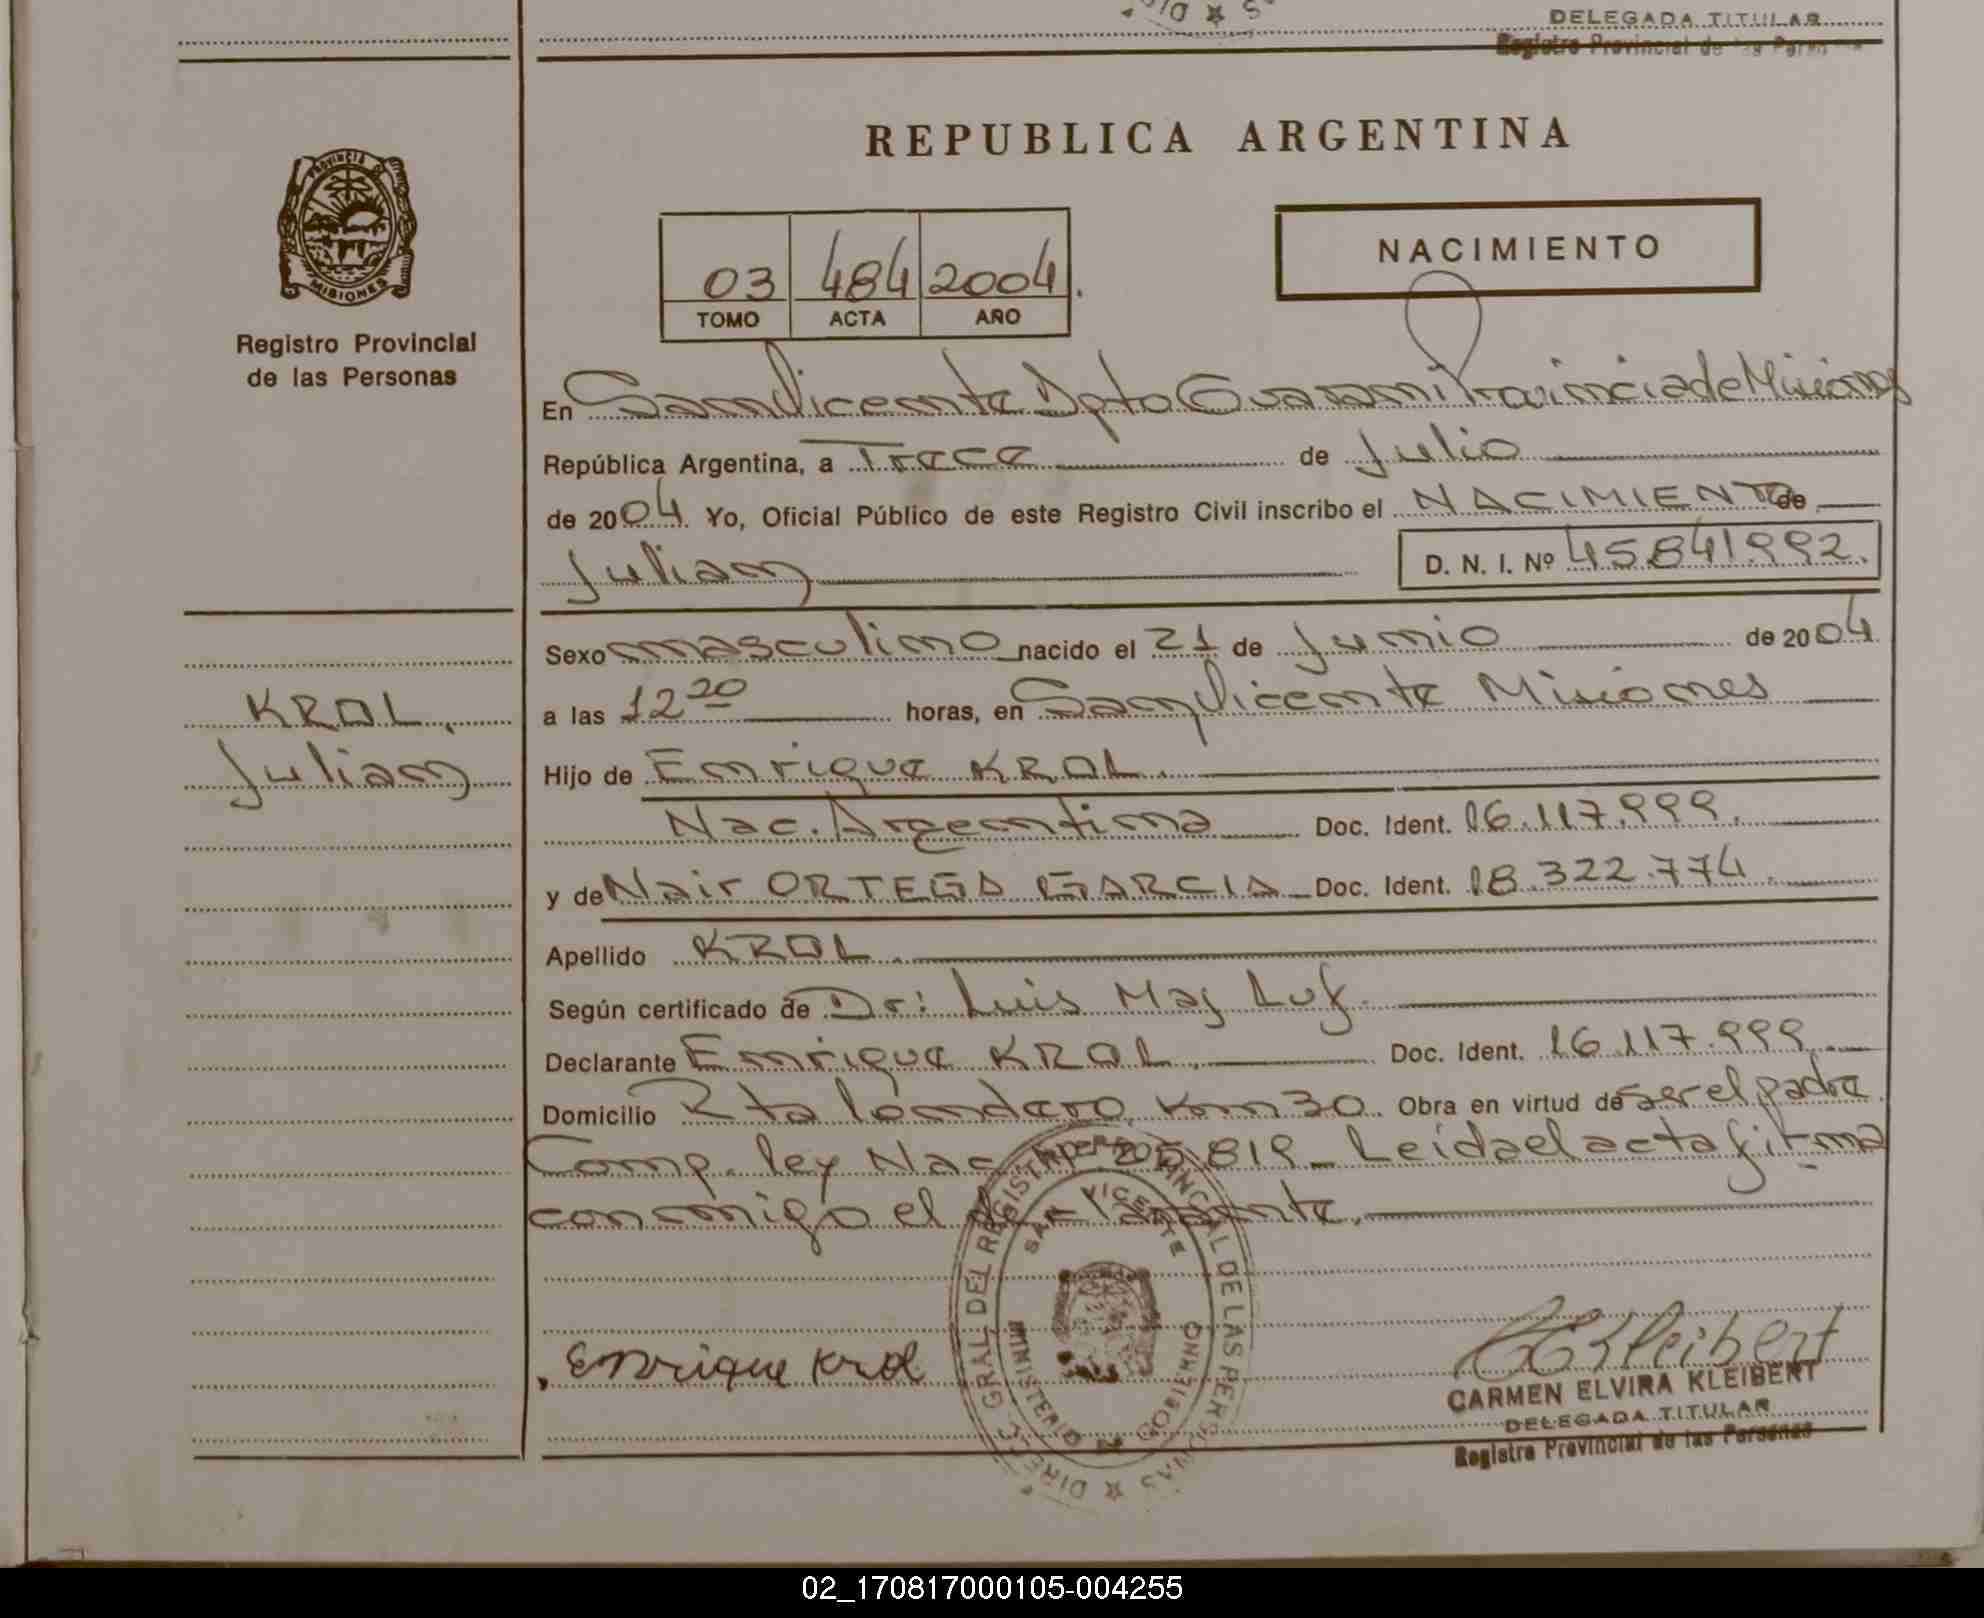 DELEGADA TITULAR
Registro Provincial de las Personas
REPUBLICA ARGENTINA
PROVINCIA DE
MISIONES
Registro Provincial
de las Personas
03 484 2004.
TOMO ACTA AÑO
NACIMIENTO
En San Vicente Dpto Guarani Provincia de Misiones
República Argentina, a Trece de Julio
de 2004 Yo, Oficial Público de este Registro Civil inscribo el NACIMIENTO de
Julian D. N. I. Nº 45.841.992.
Sexo masculino nacido el 21 de Junio de 2004
KROL. a las 12 20 horas, en San Vicente Misiones
Julian Hijo de Enrique KROL.
Nac. Argentina Doc. Ident. 16.117.999.
y de Nair ORTEGA GARCIA Doc. Ident. 18.322.774.
Apellido KROL.
Según certificado de Dr: Luis
Declarante Enrique KROL. Doc. Ident. 16.117.999.
Domicilio Km 30. Obra en virtud de ser el padre
Comp. ley Nac. 25.819_ Leida el acta firma
conmigo el declarante.
DIREC. GRAL DEL REGISTRO PROVINCIAL DE LAS PERSONAS
SAN VICENTE
MINISTERIO GOBIERNO
Enrique Krol
CEKleibert
CARMEN ELVIRA KLEIBERT
DELEGADA TITULAR
Registro Provincial de las Personas
02_170817000105-004255